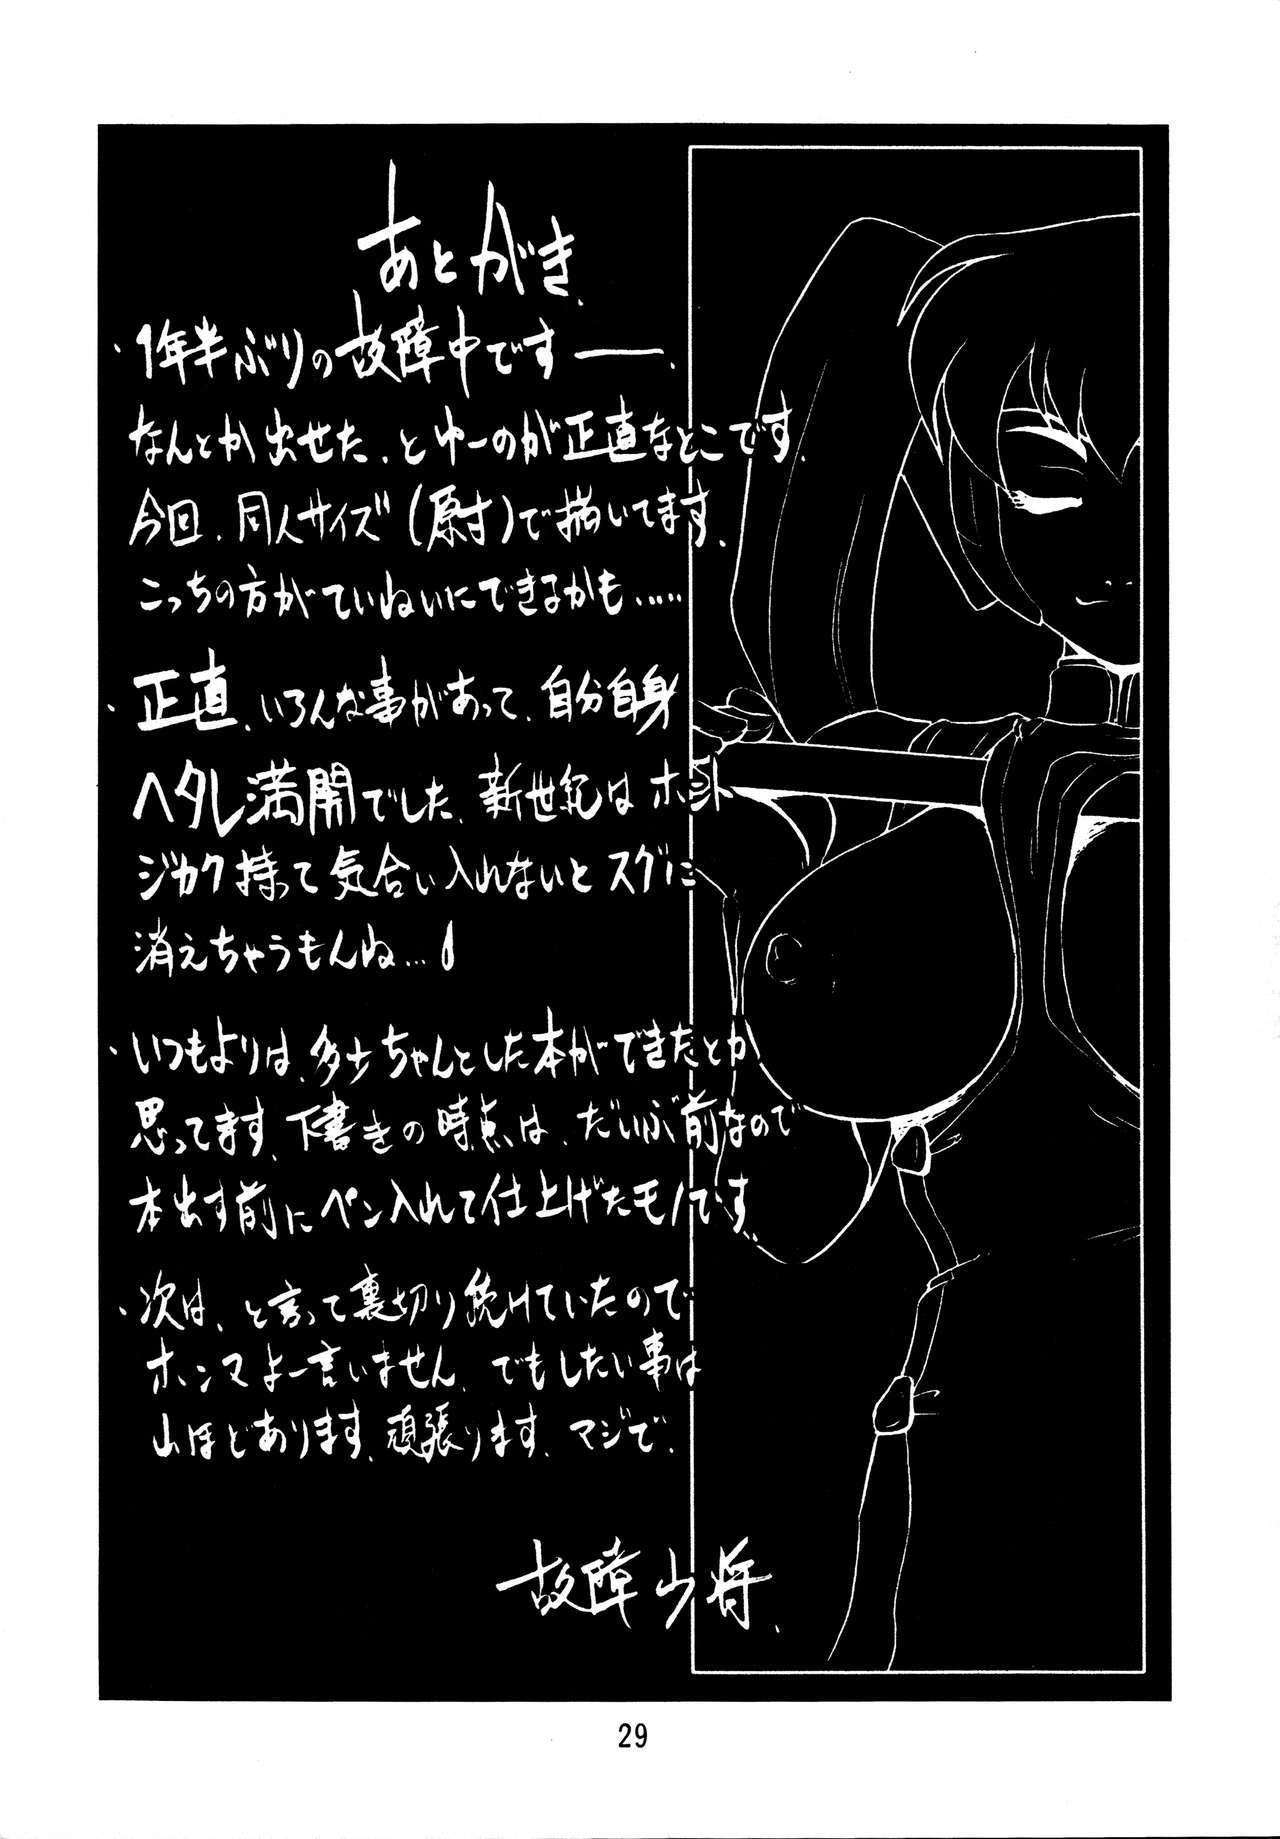 あとがき.
・1年半ぶりの故障中ですー.
なんとか出せた、とゆーのが正直なとこです.
今回、同人サイズ(原寸)で描いてます.
こっちの方がていねいにできるかも……
・正直、いろんな事があって、自分自身
ヘタレ満開でした、新世紀はホント
ジカク持って気合い入れないとスグに
消えちゃうもんね…
・いつもよりは、多少ちゃんとした本ができたとか
思ってます、下書きの時点は、だいぶ前なので
本出す前にペン入れて仕上げたモノです.
・次は、と言って裏切り続けていたので
ホンマよー言いません、でもしたい事は
山ほどあります、頑張ります、マジで.
故障少将.
29